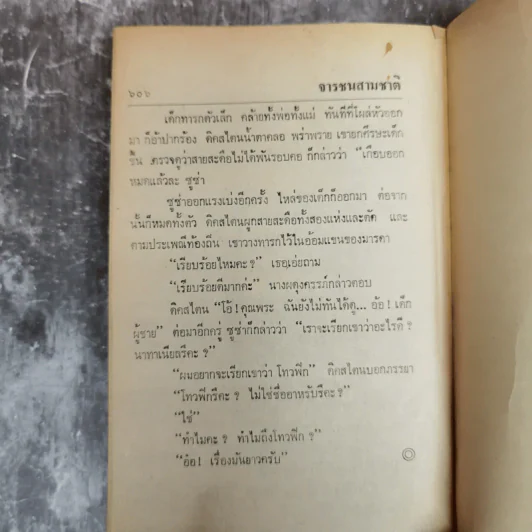 ๖๐๖
จารชนสามชาติ
เด็กทารกตัวเล็ก คล้ายทั้งพ่อทั้งแม่ ทันทีที่โผล่หัวออก
มา ก็อ้าปากร้อง ดิคสไตนน้ำตาคลอ พร่าพราย เขายกศีรษะเด็ก
ขึ้น ตรวจดูว่าสายสะดือไม่ได้พันรอบคอ ก็กล่าวว่า “เกือบออก
หมดแล้วละ ซูซ่า
ซูซ่าออกแรงเบ่งอีกครั้ง ไหล่ของเด็กก็ออกมา ต่อจาก
นั้นก็หมดทั้งตัว ดิคสไตนผูกสายสะดือทั้งสองแห่งและตัด และ
ตามประเพณีท้องถิ่น เขาวางทารกไว้ในอ้อมแขนของมารดา
“เรียบร้อยไหมคะ?” เธอเอ่ยถาม
“เรียบร้อยดีมากค่ะ” นางผดุงครรภ์กล่าวตอบ
ดิคสไตน “โอ้! คุณพระ ฉันยังไม่ทันได้ดู... อ้อ! เด็ก
ผู้ชาย” ต่อมาอีกครู่ ซูซ่าก็กล่าวว่า “เราจะเรียกเขาว่าอะไรดี?
นาทาเนียลรึคะ?
“ผมอยากจะเรียกเขาว่า โทวฟิก” ดิคสไตนบอกภรรยา
“โทวฟิกรึคะ? ไม่ใช่ชื่ออาหรับรึคะ?”
“ใช่”
“ทำไมคะ? ทำไมถึงโทวฟิก?”
“อ้อ! เรื่องมันยาวครับ”